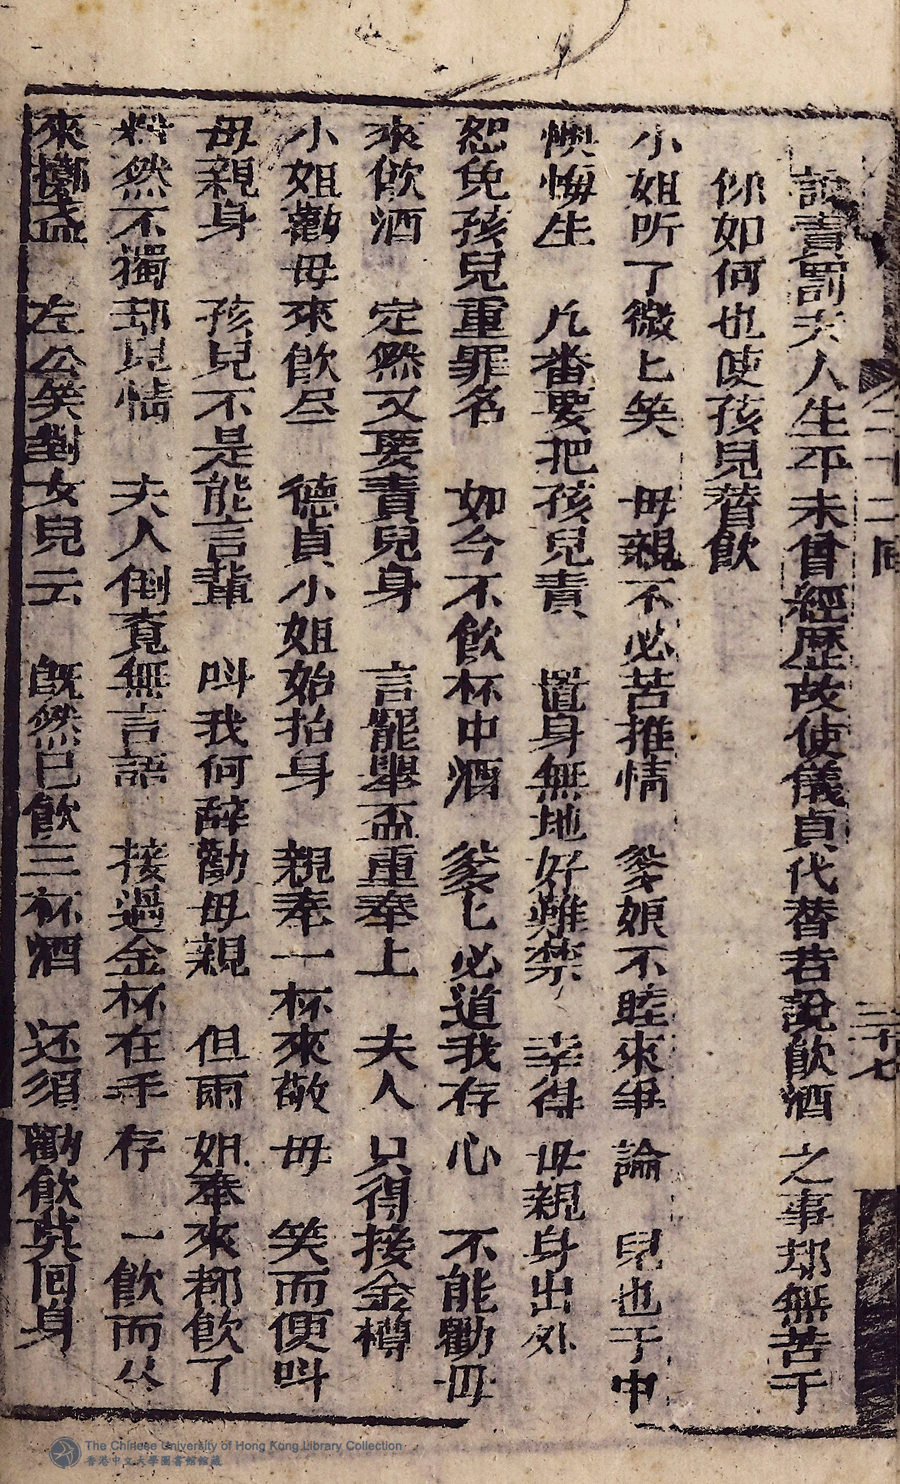 說責罰夫人生平未曾經歷故使儀貞代替若說飲酒之事却無苦于
你如何也使孩兒替飲
小姐听了微匕笑 母親不必苦推情 爹娘不睦來爭論 兒也于中
懊悔生 凡番要把孩兒責 置身無地好難禁 幸得母親身出外
恕免孩兒重罪名 如今不飲杯中酒 爹匕必道我存心 不能勸母
來飲酒 定然又要責兒身 言罷舉盃重奉上 夫人只得接金樽
小姐勸母來飲尽 德貞小姐始抬身 親奉一杯來敬母 笑而便叫
母親身 孩兒不是能言輩 叫我何辭勸母親 但兩姐奉來都飲了
料然不獨却兒情 夫人倒竟無言語 接過金杯在手存 一飲而乆
來擲盃 左公笑對女兒云 既然已飲三杯酒 还須勸飲莫囘身
二十二囘
三十七
The Chinese University of Hong Kong Library Collection
香港中文大學圖書館館藏